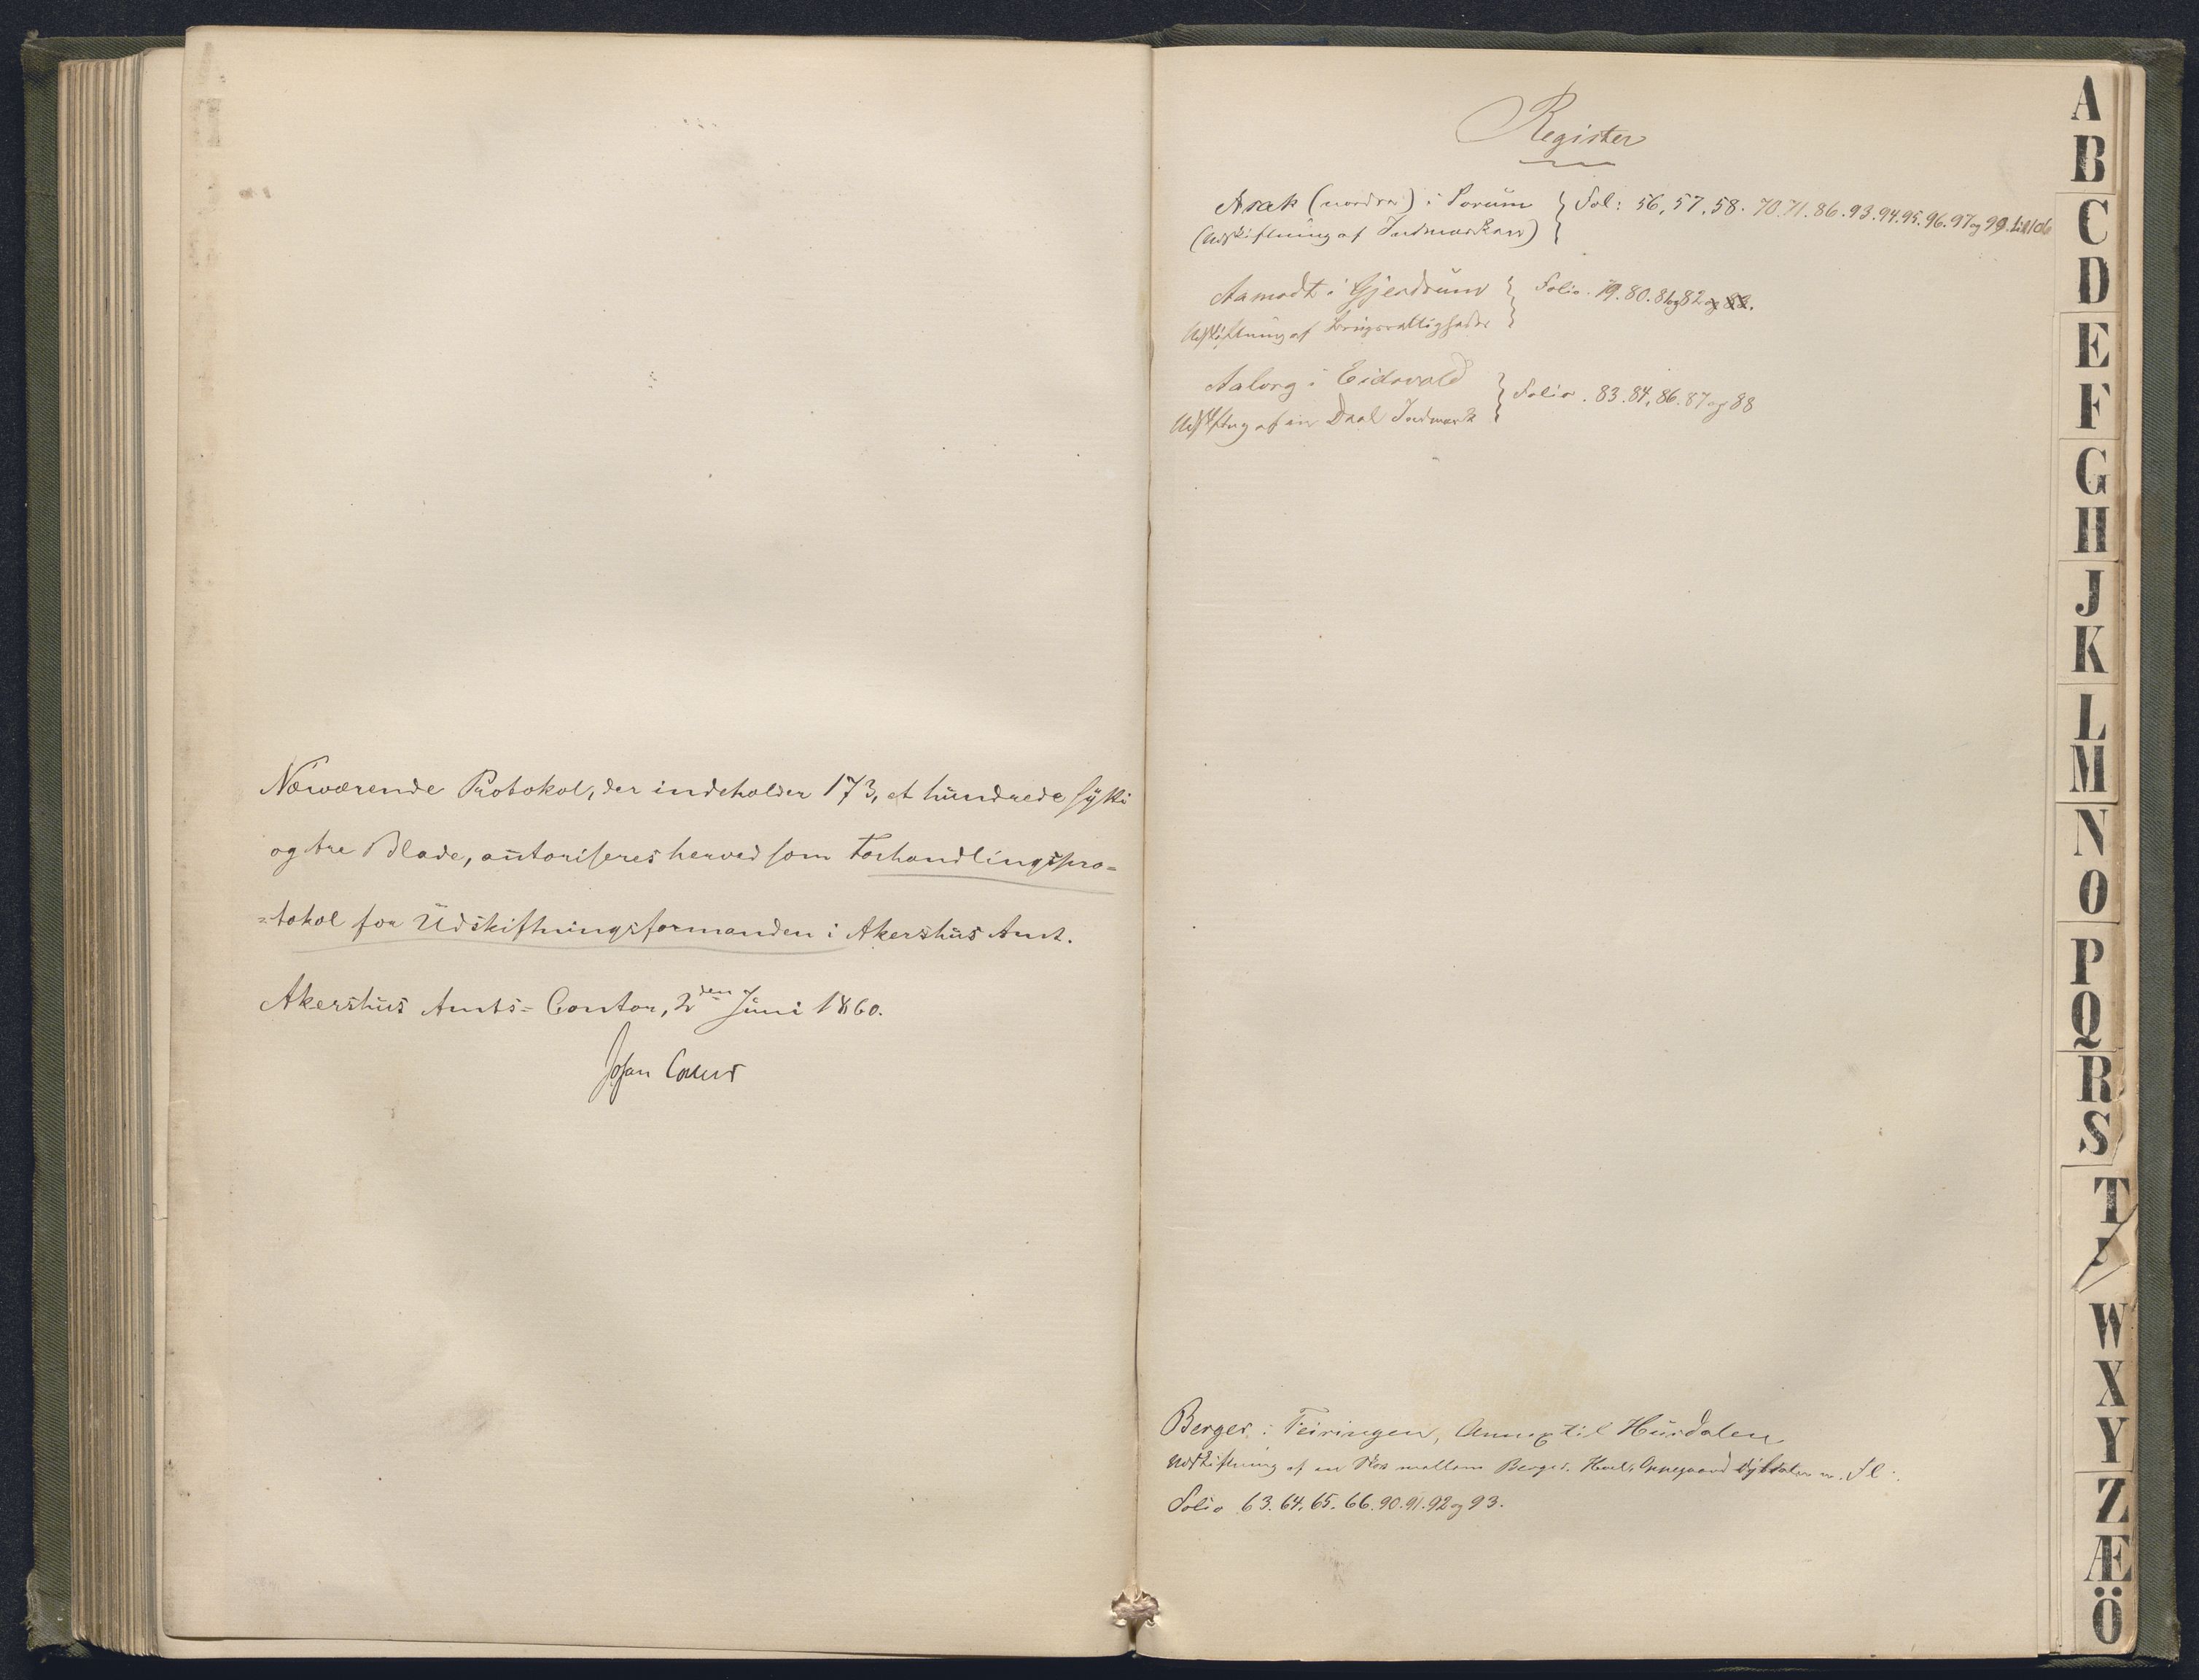 Nærværende Protokol, der indeholder 173, et hundrede sytti
og tre Blade, autoriseres herved som Forhandlingspro=
=tokol for Udskiftningsformanden i Akershus Amt.
Akershus Amts=Contor, 2den Juni 1860.
Johan Collett
Register
Arak (nordre) i Sørum } Fol: 56, 57, 58. 70. 71. 86. 93. 94. 95. 96. 97 og 99. til 106
(Udskiftning af Indmarken)
Aamodt i Gjerdrum } Folio. 79. 80. 81 og 82
Udskiftning af Brugsrettigheder
Aalborg i Eidsvold } Folio. 83. 84, 86. 87 og 88
Udskiftng af en Deel Indmark
Berger i Feiringen, Annex til Hurdalen
Udskiftning af en Skov mellem Berger, Oppegaard m. Fl.
Folio 63. 64. 65. 66. 90. 91. 92 og 93.
A
B
C
D
E
F
G
H
J
K
L
M
N
O
P
Q
R
S
T
W
X
Y
Z
Æ
Ö